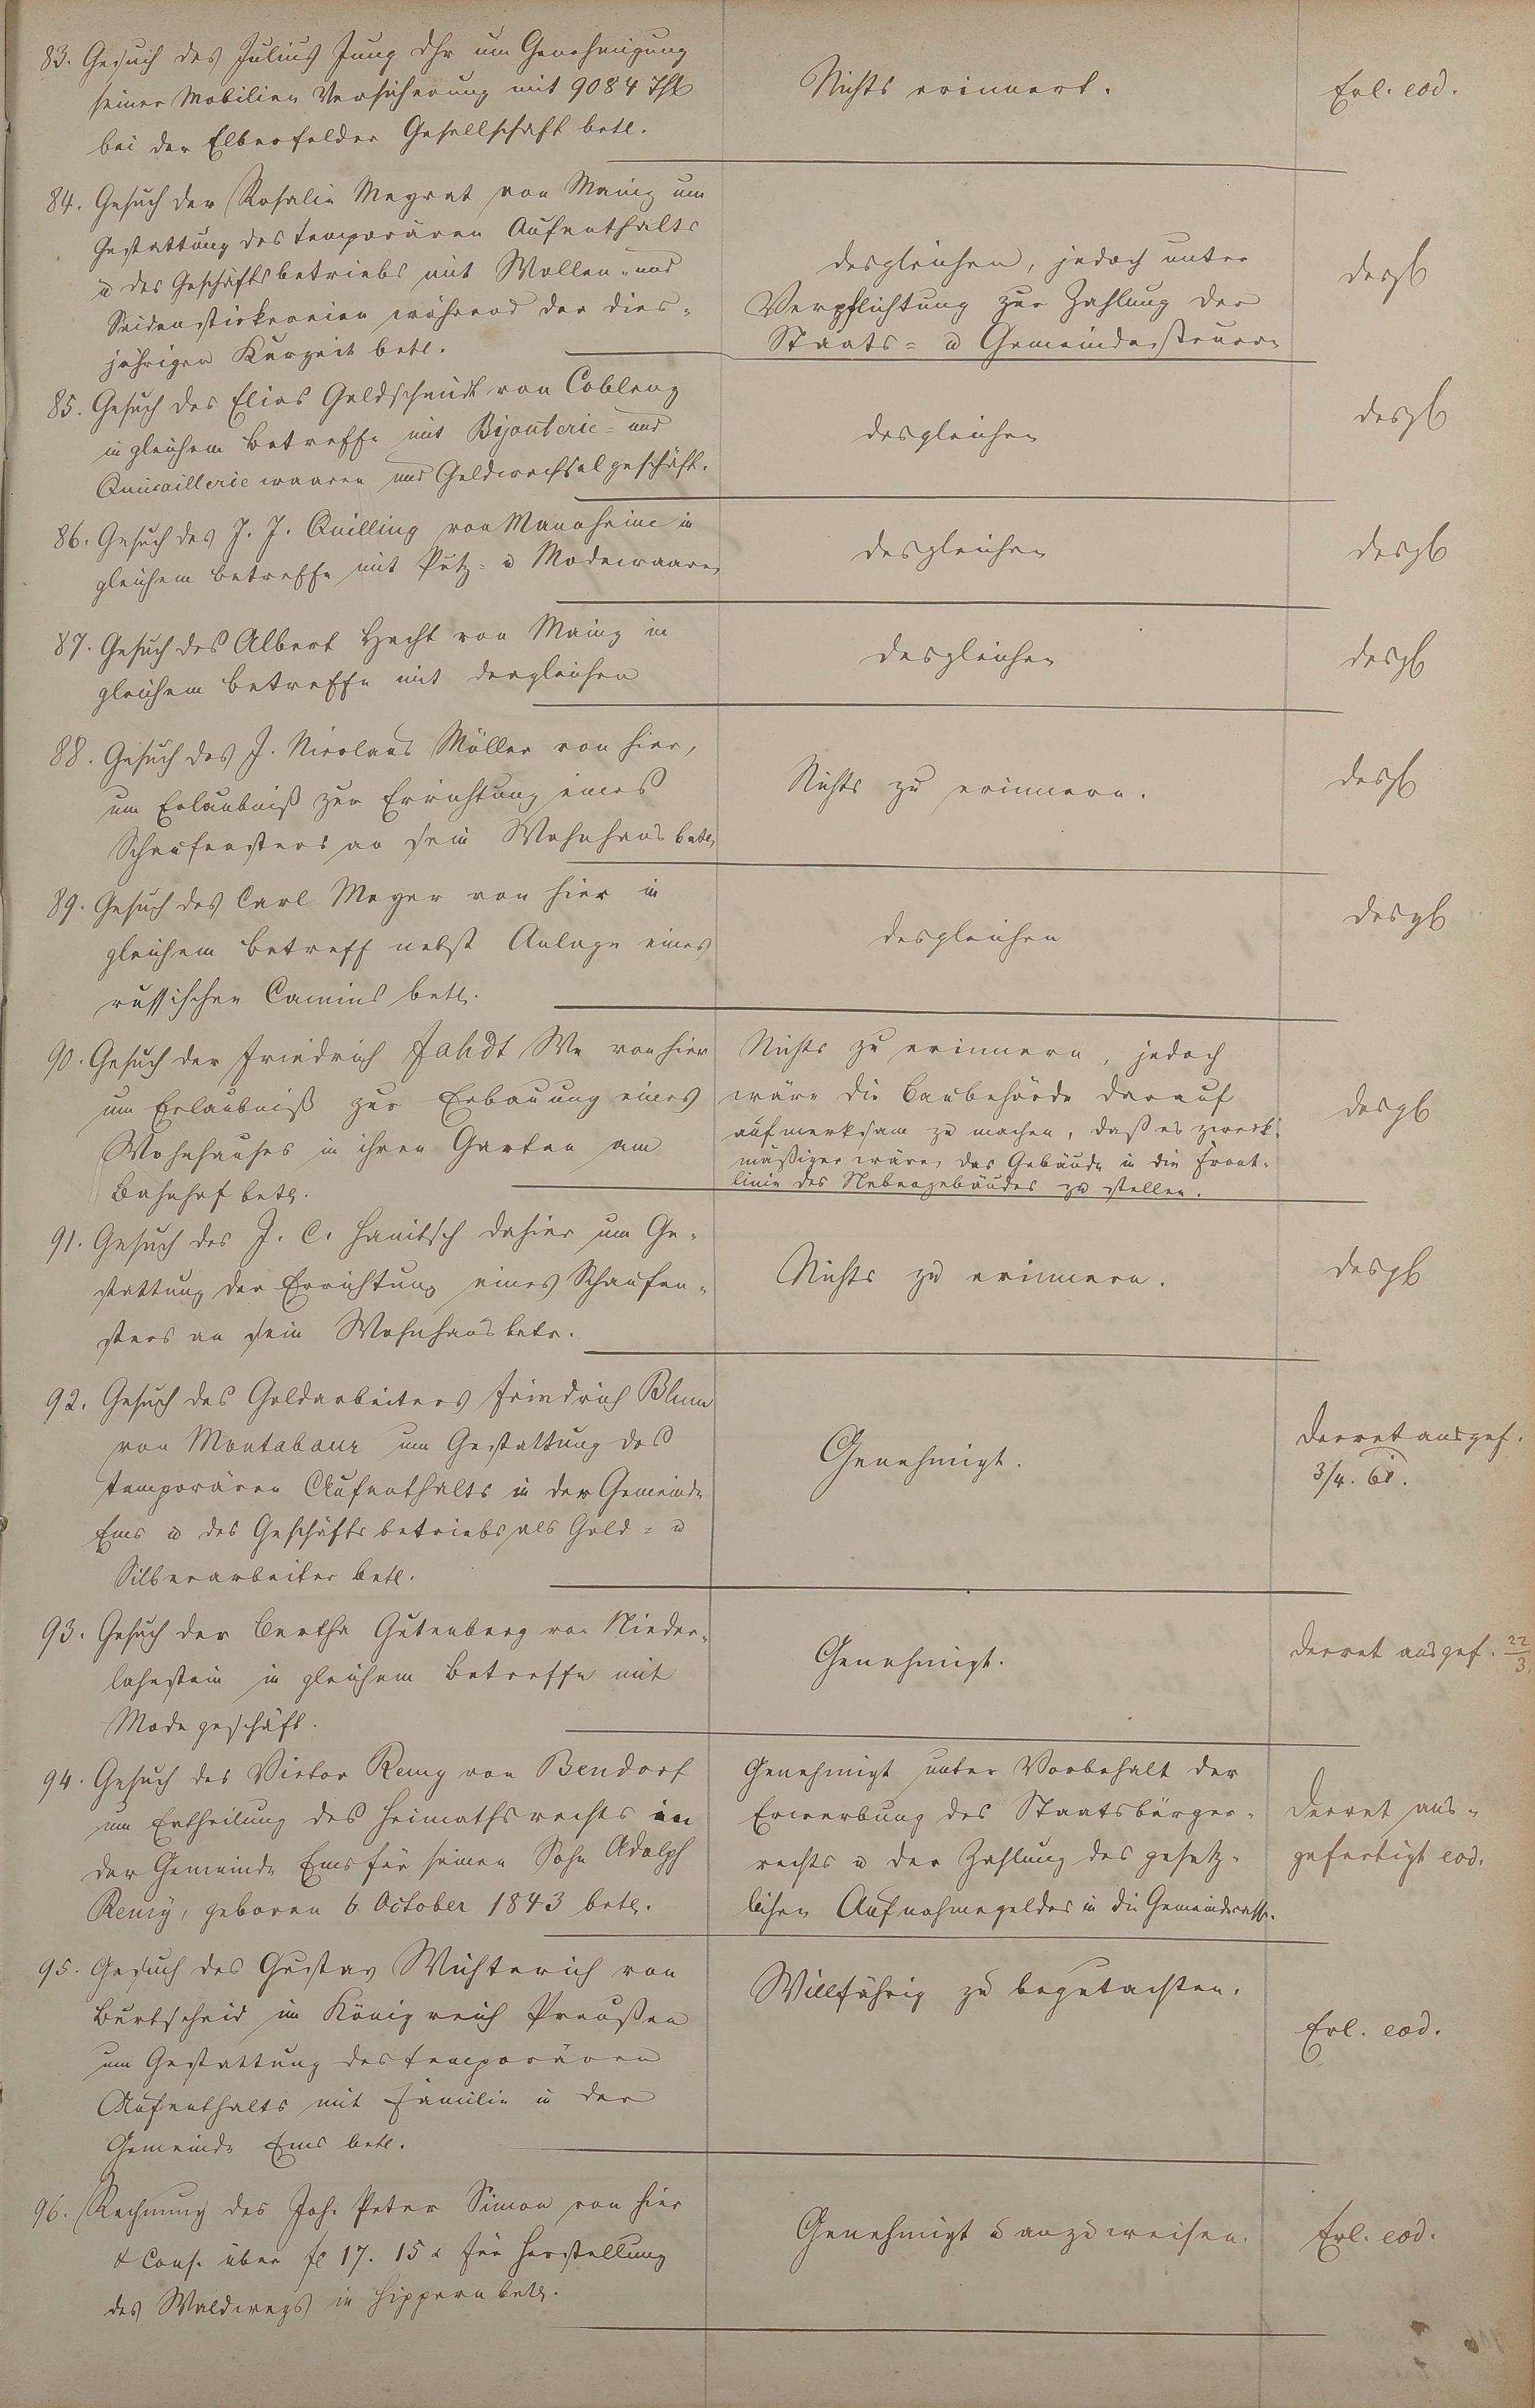 83. Gesuch des Julius Jung dhr um Genehmigung
seiner Mobilien Versicherung mit 9084 Thl
bei der Elberfelder Gesellschaft betr.
Nichts erinnert.
Erl. eod.
84. Gesuch der Rosalie Magrat von Mainz um
Gestattung des temporären Aufenthalts
u des Geschäftsbetriebs mit Wollen- und
Seidenstickereien während der dies-
jährigen Kurzeit betr.
desgleichen, jedoch unter
Verpflichtung zur Zahlung der
Staats- u Gemeindesteuern
desgl
85. Gesuch des Elias Goldschmidt von Coblenz
in gleichem Betreffe mit Bijouterie- und
Quincailleriewaaren und Geldwechselgeschäft.
desgleichen
desgl
86. Gesuch des J. J. Quilling von Mannheim in
gleichem Betreffe mit Putz- u Modewaaren
desgleichen
desgl
87. Gesuch des Albert Hecht von Mainz in
gleichem Betreffe mit dergleichen
desgleichen
desgl
88. Gesuch des J. Nicolaus Müller von hier,
um Erlaubniß zur Errichtung eines
Schaufensters an sein Wohnhaus betr.
Nichts zu erinnern.
desgl
89. Gesuch des Carl Meyer von hier in
gleichem Betreff nebst Anlage eines
russischen Camins betr.
desgleichen
desgl
90. Gesuch der Friedrich Jahdt We von hier
um Erlaubniß zur Erbauung eines
Wohnhauses in ihren Garten am
Bahnhof betr.
Nichts zu erinnern, jedoch
wäre die Baubehörde darauf
aufmerksam zu machen, daß es zweck-
mäßiger wäre, das Gebäude in die Front-
linie des Nebengebäudes zu stellen.
desgl
91. Gesuch des J. C. Hanitsch dahier um Ge-
stattung der Errichtung eines Schaufen-
sters an sein Wohnhaus betr.
Nichts zu erinnern.
desgl
92. Gesuch des Goldarbeiters Friedrich Blum
von Montabaur um Gestattung des
temporären Aufenthalts in der Gemeinde
Ems u des Geschäftsbetriebs als Gold- u
Silberarbeiter betr.
Genehmigt.
Decret ausgef.
3/4. 61.
93. Gesuch der Bertha Gutenberg von Nieder-
lahnstein in gleichem Betreffe mit
Modegeschäft.
Genehmigt.
Decret ausgef. 22/3
94. Gesuch des Victor Remy von Bendorf
um Ertheilung des Heimathsrechts in
der Gemeinde Ems für seinen Sohn Adolph
Remy, geboren 6. October 1843 betr.
Genehmigt unter Vorbehalt der
Erwerbung des Staatsbürger-
rechts u der Zahlung des gesetz-
lichen Aufnahmegeldes in die Gemeindecasse.
Decret aus-
gefertigt eod.
95. Gesuch des Gustav Wichterich von
Burtscheid im Königreich Preußen
um Gestattung des temporären
Aufenthalts mit Familie in der
Gemeinde Ems betr.
Willfährig zu begutachten.
Erl. eod.
96. Rechnung des Joh. Peter Simon von hier
& Cons. über fl 17. 15 x für Herstellung
des Waldwegs in Hippern betr.
Genehmigt u anzuweisen.
Erl. eod.